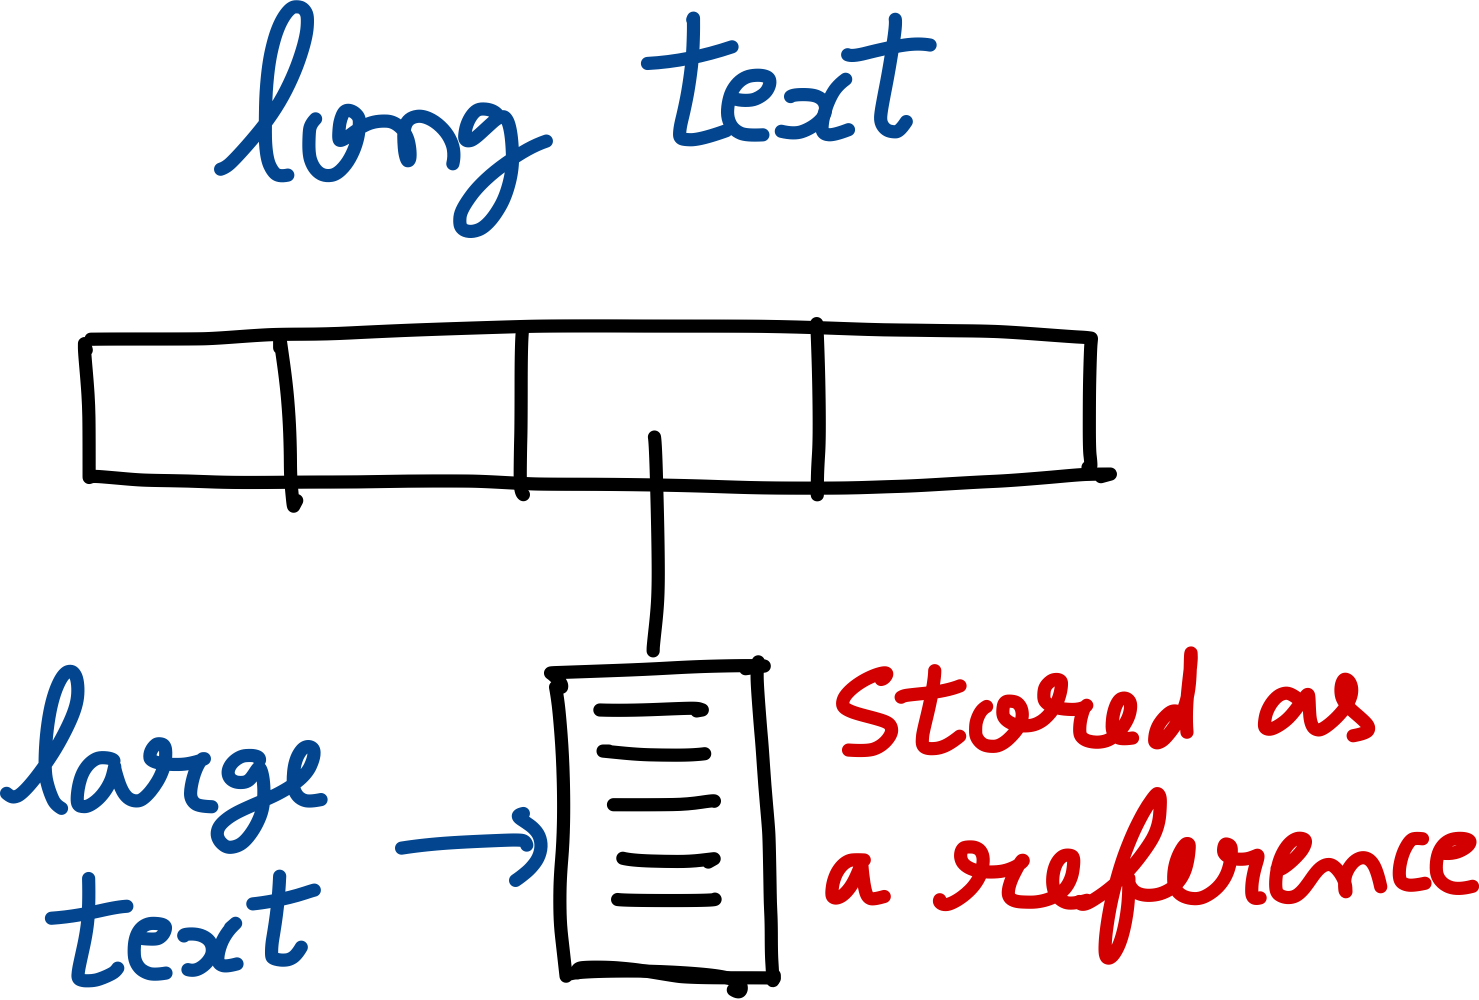 long text
large
text
Stored as
a reference